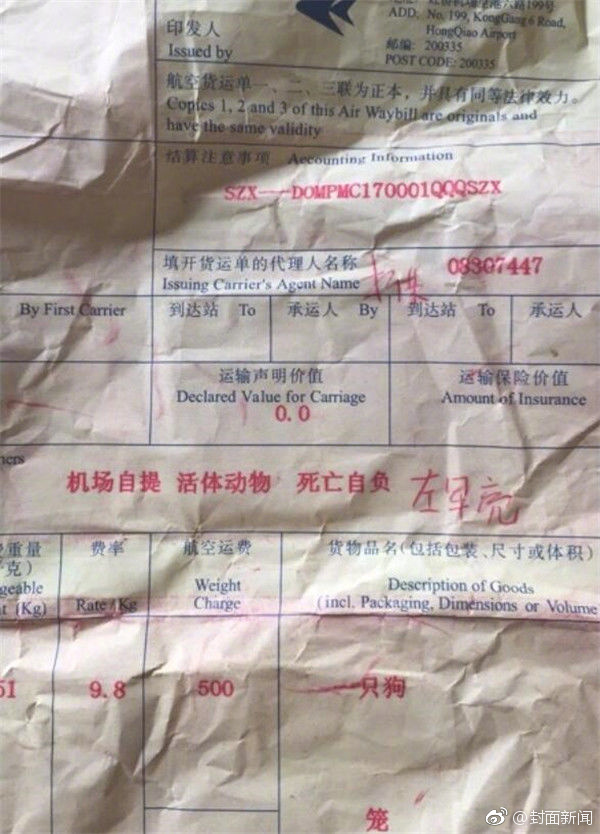 号
ADD: No. 199, KongGang 6 Road,
HongQiao Airport
邮编: 200335
POST CODE: 200335
印发人
Issued by
航空货运单一、二、三联为正本，并具有同等法律效力。
Copies 1, 2 and 3 of this Air Waybill are originals and
have the same validity
结算注意事项 Accounting Information
SZX----DOMPMC170001QQQSZX
填开货运单的代理人名称
Issuing Carrier's Agent Name
08307447
By First Carrier
到达站 To
承运人 By
到达站 To
承运人
运输声明价值
Declared Value for Carriage
0.0
运输保险价值
Amount of Insurance
机场自提 活体动物 死亡自负
重量
克）
geable
(Kg)
费率
Rate/Kg
航空运费
Weight
Charge
货物品名(包括包装、尺寸或体积)
Description of Goods
(incl. Packaging, Dimensions or Volume
51
9.8
500
一只狗
笼
@封面新闻